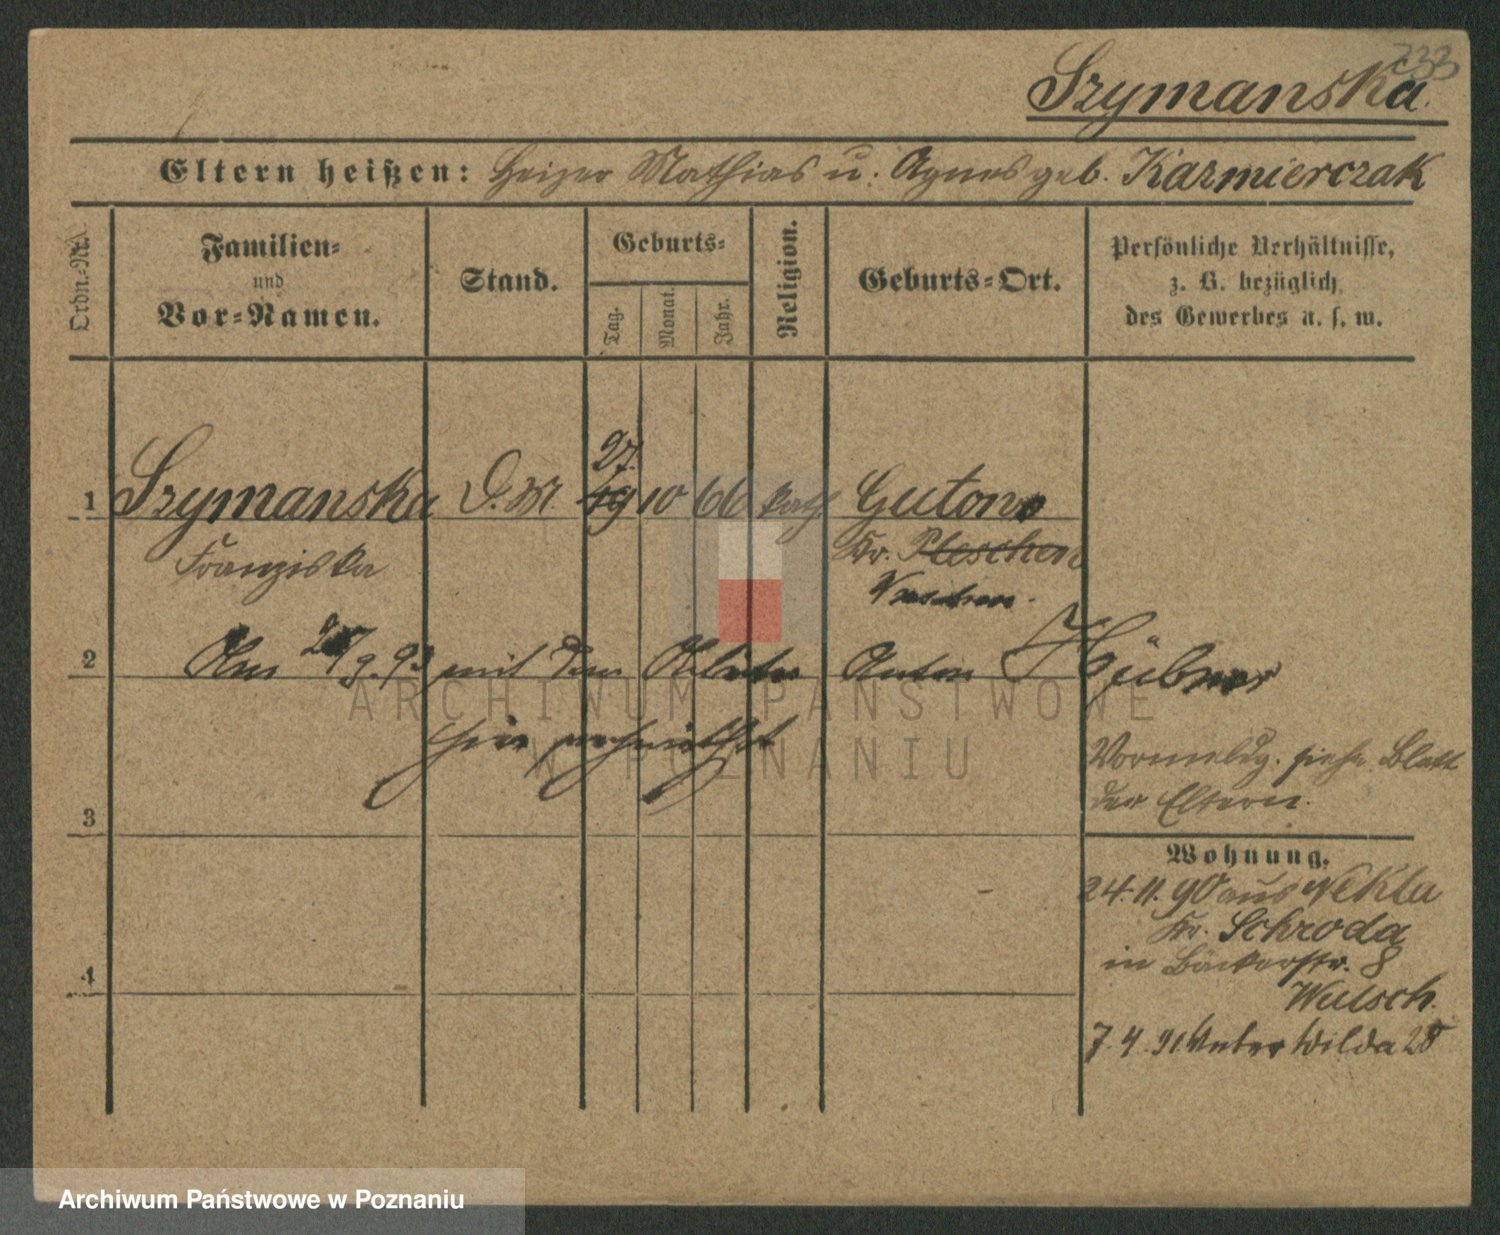 733
Szymanska.
Eltern heißen: Heizer Mathias u. Agnes geb. Kazmierczak
Ordn.-Nr.
Familien-
und
Vor-Namen.
Stand.
Geburts-
Tag.
Monat.
Jahr.
Religion.
Geburts-Ort.
Persönliche Verhältnisse,
z. B. bezüglich
des Gewerbes u. s. w.
27.
1 Szymanska D. M. 19 10 66 kath Gutowo
Franziska Kr. Pleschen
Wreschen.
2 Am 9. 93 mit dem Anton Hübner
hier verheirathet
Vormeldg. siehe Blatt
der Eltern.
3
Wohnung.
24. 11. 90 aus Nekla
Kr. Schroda
in Bäckerstr. 8
Wutsch.
4
7. 4. 91 Unter Wilda 28
ARCHIWUM PAŃSTWOWE
W POZNANIU
Archiwum Państwowe w Poznaniu